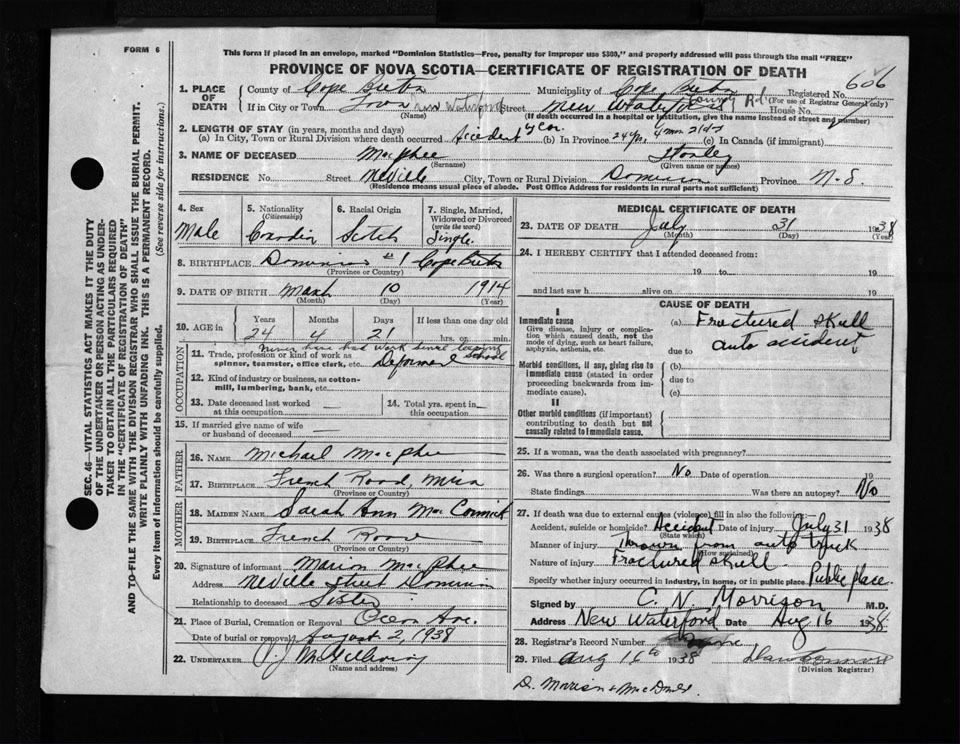 FORM 6
This form if placed in an envelope, marked "Dominion Statistics—Free, penalty for improper use $300," and properly addressed will pass through the mail "FREE"
PROVINCE OF NOVA SCOTIA—CERTIFICATE OF REGISTRATION OF DEATH
1. PLACE OF DEATH
County of Cape Breton Municipality of Cape Breton Registered No. 606
(For use of Registrar General only)
If in City or Town Town New Waterford Street New Waterford Rd. House No.
(Name) (If death occurred in a hospital or institution, give the name instead of street and number)
2. LENGTH OF STAY (in years, months and days)
(a) In City, Town or Rural Division where death occurred Accident (b) In Province 24 yr. 4 mos 21 dy (c) In Canada (if immigrant)
3. NAME OF DECEASED MacPhee Stanley
(Surname) (Given name or names)
RESIDENCE No. Street Neville City, Town or Rural Division Dominion Province N.S.
(Residence means usual place of abode. Post Office Address for residents in rural parts not sufficient)
4. Sex
Male
5. Nationality (Citizenship)
6. Racial Origin
Scotch
7. Single, Married, Widowed or Divorced (write the word)
Single
8. BIRTHPLACE Dominion #1 Cape Breton
(Province or Country)
9. DATE OF BIRTH March 10 1914
(Month) (Day) (Year)
10. AGE in Years Months Days If less than one day old
24 4 21 hrs. or min.
OCCUPATION
never have had work since leaving school
11. Trade, profession or kind of work as spinner, teamster, office clerk, etc.
12. Kind of industry or business, as cotton-mill, lumbering, bank, etc.
13. Date deceased last worked at this occupation
14. Total yrs. spent in this occupation
15. If married give name of wife or husband of deceased —
FATHER
16. NAME Michael MacPhee
17. BIRTHPLACE French Road, Mira
(Province or Country)
MOTHER
18. MAIDEN NAME Sarah Ann MacCormick
19. BIRTHPLACE French Road
(Province or Country)
20. Signature of informant Marion MacPhee
Address Neville Street Dominion
Relationship to deceased Sister
21. Place of Burial, Cremation or Removal Ocean Ave.
Date of burial or removal August 2, 1938
22. UNDERTAKER
(Name and address)
MEDICAL CERTIFICATE OF DEATH
23. DATE OF DEATH July 31 1938
(Month) (Day) (Year)
24. I HEREBY CERTIFY that I attended deceased from:
19 to 19
and last saw h alive on 19
CAUSE OF DEATH
I
Immediate cause
Give disease, injury or complication which caused death, not the mode of dying, such as heart failure, asphyxia, asthenia, etc.
(a) Fractured skull
due to auto accident
Morbid conditions, if any, giving rise to immediate cause (stated in order proceeding backwards from immediate cause).
(b)
due to
(c)
II
Other morbid conditions (if important) contributing to death but not causally related to immediate cause.
25. If a woman, was the death associated with pregnancy?
26. Was there a surgical operation? No Date of operation 19
State findings Was there an autopsy? No
27. If death was due to external causes (violence) fill in also the following:
Accident, suicide or homicide? Accident Date of injury July 31 1938
(State which)
Manner of injury Thrown from auto truck
(How sustained)
Nature of injury Fractured skull.
Specify whether injury occurred in industry, in home, or in public place Public place.
Signed by C. N. Morrison M.D.
Address New Waterford Date Aug 16 1938
28. Registrar's Record Number
29. Filed Aug 16th 1938
(Division Registrar)
SEC. 46—VITAL STATISTICS ACT MAKES IT THE DUTY OF THE UNDERTAKER OR PERSON ACTING AS UNDERTAKER TO OBTAIN ALL THE PARTICULARS REQUIRED IN THE "CERTIFICATE OF REGISTRATION OF DEATH" AND TO FILE THE SAME WITH THE DIVISION REGISTRAR WHO SHALL ISSUE THE BURIAL PERMIT.
WRITE PLAINLY WITH UNFADING INK. THIS IS A PERMANENT RECORD.
Every item of information should be carefully supplied. (See reverse side for instructions.)